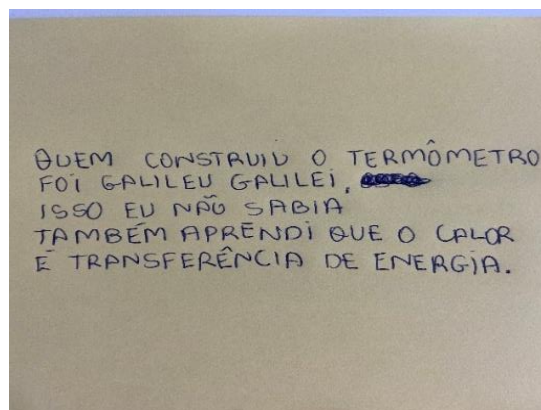 QUEM CONSTRUIU O TERMÔMETRO
FOI GALILEU GALILEI,
ISSO EU NÃO SABIA
TAMBÉM APRENDI QUE O CALOR
É TRANSFERÊNCIA DE ENERGIA.